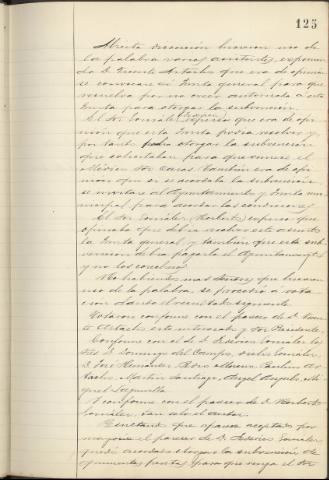 125
Abierta discusión hicieron uso de
la palabra varios asistentes, exponien
do D. Vicente Artacho que era de opinión
se convocase en Junta general para que
resuelva por no creer autorizada a esta
Junta para otorgar la subvención.
El Sor González (Isidoro) expresó que era de opi
nión que esta Junta podía resolver y,
por tanto otorgar la subvención
que solicitaban para que viniese el
Médico Sor Casas. También era de opi
nión que si se acordaba la subvención
se invitase al Ayuntamiento y Junta mu
nicipal para acordar las condiciones
El Sor González (Norberto) expuso que
opinaba que debía resolver este asunto
la Junta general y también que esta sub
vención debía pagarla el Ayuntamiento
y no los
No habiendo más Señores que hicieran
uso de la palabra se procedió a vota
ción dando el resultado siguiente
Votaron conforme con el parecer de D. Vicen
te Artacho este interesado y Sor Presidente.
Conforme con el de D. Isidoro González los
Sres D. Domingo del Campo, González,
D. José Hernández, Pedro Moreno, Ar
tacho, Martín Santiago, Angel Mi
guel
Y conforme con el parecer de D. Norberto
González, tan solo el autor.
Resultando que aparece aceptado por
mayoría el parecer de D. Isidoro González
quedó acordado otorgar la subvención de
pesetas para que venga el Sor